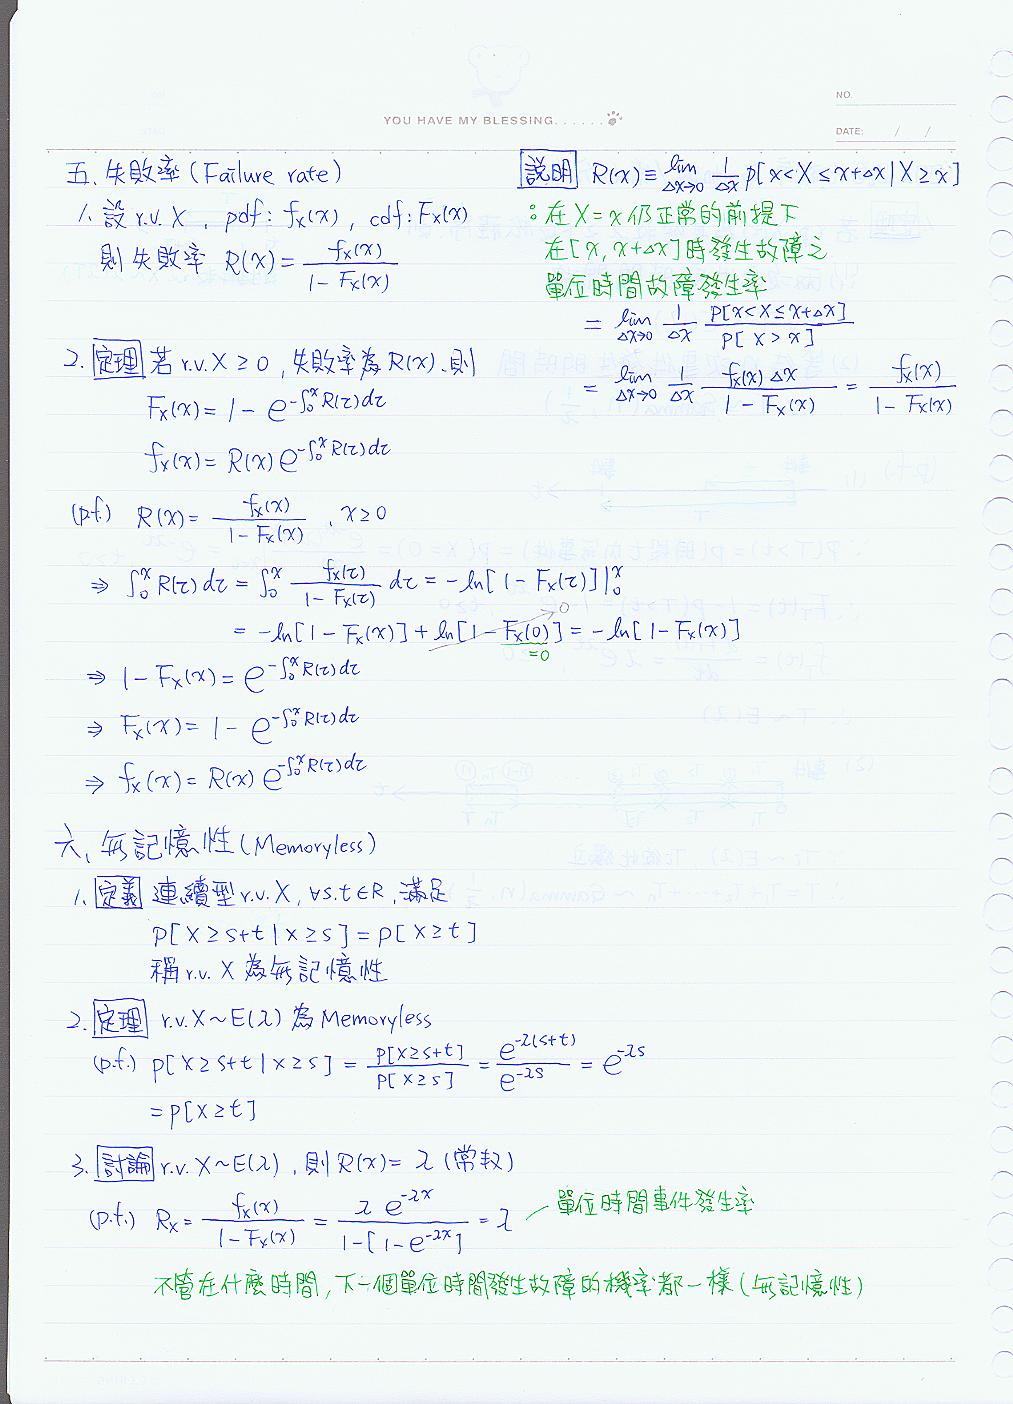 YOU HAVE MY BLESSING......
NO.
DATE: / /
五、失敗率(Failure rate)
1. 設 r.v. X , pdf: fx(x) , cdf: Fx(x)
則 失敗率 R(x) = fx(x) / (1 - Fx(x))
説明 R(x) ≡ lim Δx→0 1/Δx P[x<X≤x+Δx | X≥x]
：在 X=x 仍正常的前提下
在[x, x+Δx]時發生故障之
單位時間故障發生率
= lim Δx→0 1/Δx P[x<X≤x+Δx] / P[X>x]
= lim Δx→0 1/Δx fx(x)Δx / (1 - Fx(x)) = fx(x) / (1 - Fx(x))
2. 定理 若 r.v. X ≥ 0 , 失敗率為 R(x), 則
Fx(x) = 1 - e^{-∫₀ˣ R(τ)dτ}
fx(x) = R(x) e^{-∫₀ˣ R(τ)dτ}
(p.f.) R(x) = fx(x) / (1 - Fx(x)) , x≥0
⇒ ∫₀ˣ R(τ)dτ = ∫₀ˣ fx(τ) / (1 - Fx(τ)) dτ = -ln[1 - Fx(τ)]|₀ˣ
= -ln[1 - Fx(x)] + ln[1 - Fx(0)] = -ln[1 - Fx(x)]
0
=0
⇒ 1 - Fx(x) = e^{-∫₀ˣ R(τ)dτ}
⇒ Fx(x) = 1 - e^{-∫₀ˣ R(τ)dτ}
⇒ fx(x) = R(x) e^{-∫₀ˣ R(τ)dτ}
六、無記憶性(Memoryless)
1. 定義 連續型 r.v. X, ∀s.t∈R, 滿足
P[X≥s+t | X≥s] = P[X≥t]
稱 r.v. X 為無記憶性
2. 定理 r.v. X~E(λ) 為 Memoryless
(p.f.) P[X≥s+t | X≥s] = P[X≥s+t] / P[X≥s] = e^{-λ(s+t)} / e^{-λs} = e^{-λs}
= P[X≥t]
3. 討論 r.v. X~E(λ) , 則 R(x) = λ (常數)
(p.f.) Rx = fx(x) / (1 - Fx(x)) = λ e^{-λx} / (1 - [1 - e^{-λx}]) = λ
單位時間事件發生率
不管在什麼時間, 下一個單位時間發生故障的機率都一樣(無記憶性)